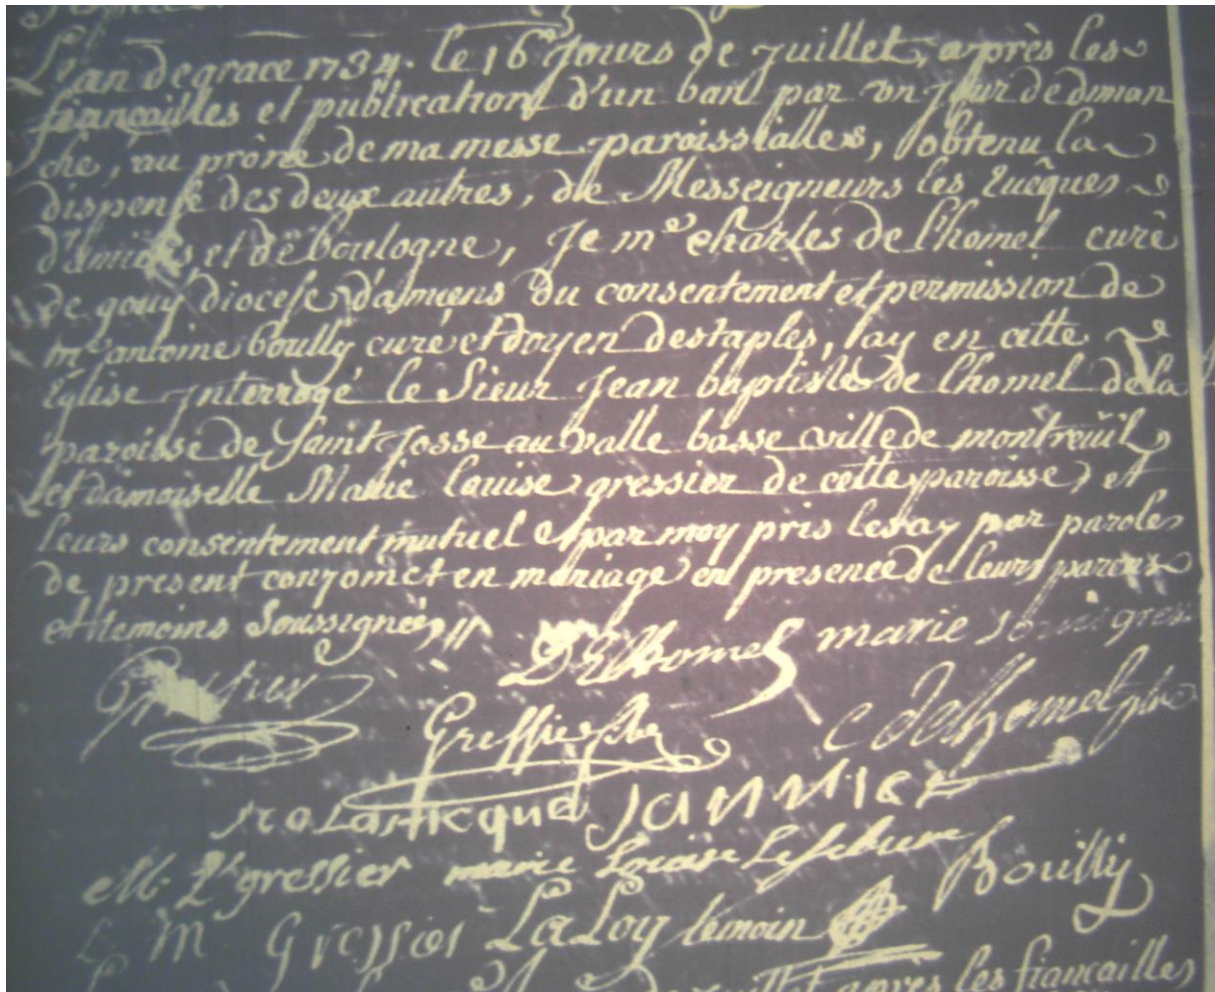 L'an de grace 1734. le 16e jours de juillet, après les
fiançailles et publication d'un ban par un jour de diman
che, au prône de ma messe paroissialles, obtenu la
dispense des deux autres, de Messeigneurs les Evêques
d'amiens, et de boulogne, Je me charles de l'homel curé
de gouy diocese d'amiens du consentement et permission de
me antoine boully curé et doyen destaples, lay en cette
Eglise Interrogé le Sieur Jean baptiste de lhomel de la
paroisse de Saint Josse au valle basse ville de montreüil
et damoiselle Marie louise gressier de cette paroisse, et
leurs consentement mutuel et par moy pris les ay par paroles
de present conjoinct en mariage en presence de leurs parens
et temoins Soussignés //
Delhomel marie louis gress
Gressier
c delhomel ptre
JANNIER
M. gressier marie Louise Lefebure
Boully
M Gressier LaLoy temoin
juillet apres les fiancailles